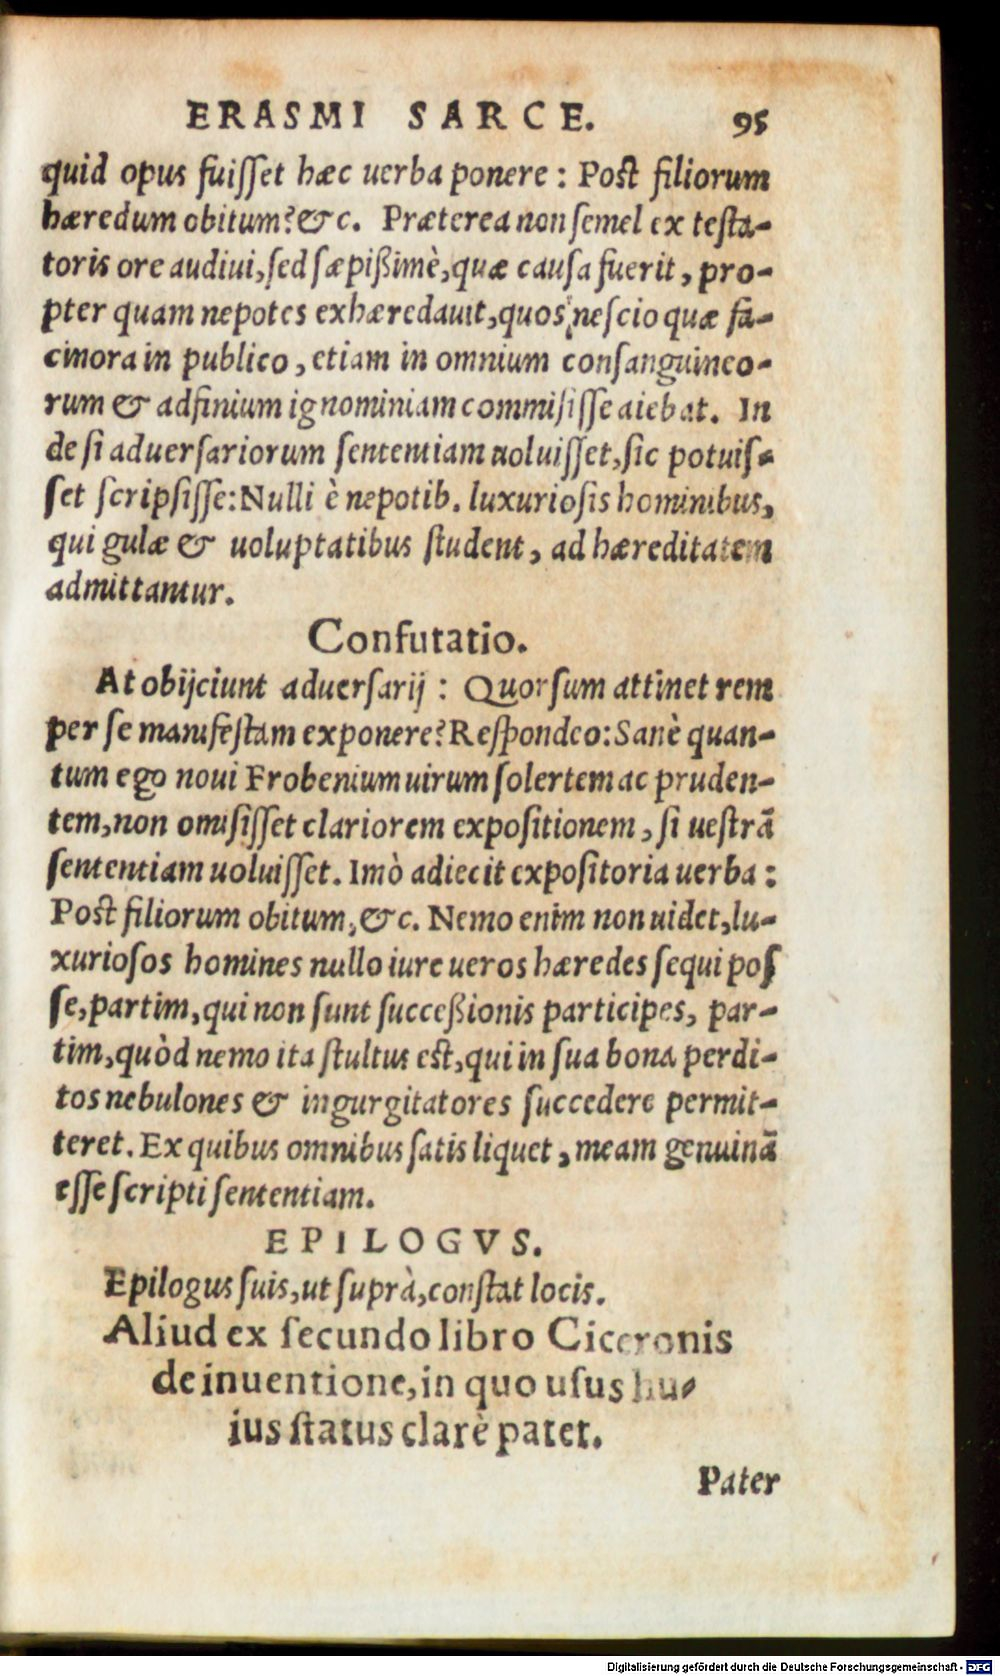 ERASMI SARCE. 95
quid opus fuiſſet hæc uerba ponere: Poſt filiorum
hæredum obitum? &c. Præterea non ſemel ex teſta-
toris ore audiui, ſed ſæpißimè, quæ cauſa fuerit, pro-
pter quam nepotes exhæredauit, quos neſcio quæ fa-
cinora in publico, etiam in omnium conſanguineo-
rum & adfinium ignominiam commiſiſſe aiebat. In
de ſi aduerſariorum ſententiam uoluiſſet, ſic potuiſ-
ſet ſcripſiſſe: Nulli è nepotib. luxurioſis hominibus,
qui gulæ & uoluptatibus ſtudent, ad hæreditatem
admittantur.
Confutatio.
At obijciunt aduerſarij: Quorſum attinet rem
per ſe manifeſtam exponere? Reſpondeo: Sanè quan-
tum ego noui Frobenium uirum ſolertem ac pruden-
tem, non omiſiſſet clariorem expoſitionem, ſi ueſtrā
ſententiam uoluiſſet. Imò adiecit expoſitoria uerba:
Poſt filiorum obitum, &c. Nemo enim non uidet, lu-
xurioſos homines nullo iure ueros hæredes ſequi poſ
ſe, partim, qui non ſunt ſucceßionis participes, par-
tim, quòd nemo ita ſtultus eſt, qui in ſua bona perdi-
tos nebulones & ingurgitatores ſuccedere permit-
teret. Ex quibus omnibus ſatis liquet, meam genuinā
eſſe ſcripti ſententiam.
EPILOGVS.
Epilogus ſuis, ut ſuprà, conſtat locis.
Aliud ex ſecundo libro Ciceronis
de inuentione, in quo uſus hu-
ius ſtatus clarè patet.
Pater
Digitalisierung gefördert durch die Deutsche Forschungsgemeinschaft - DFG